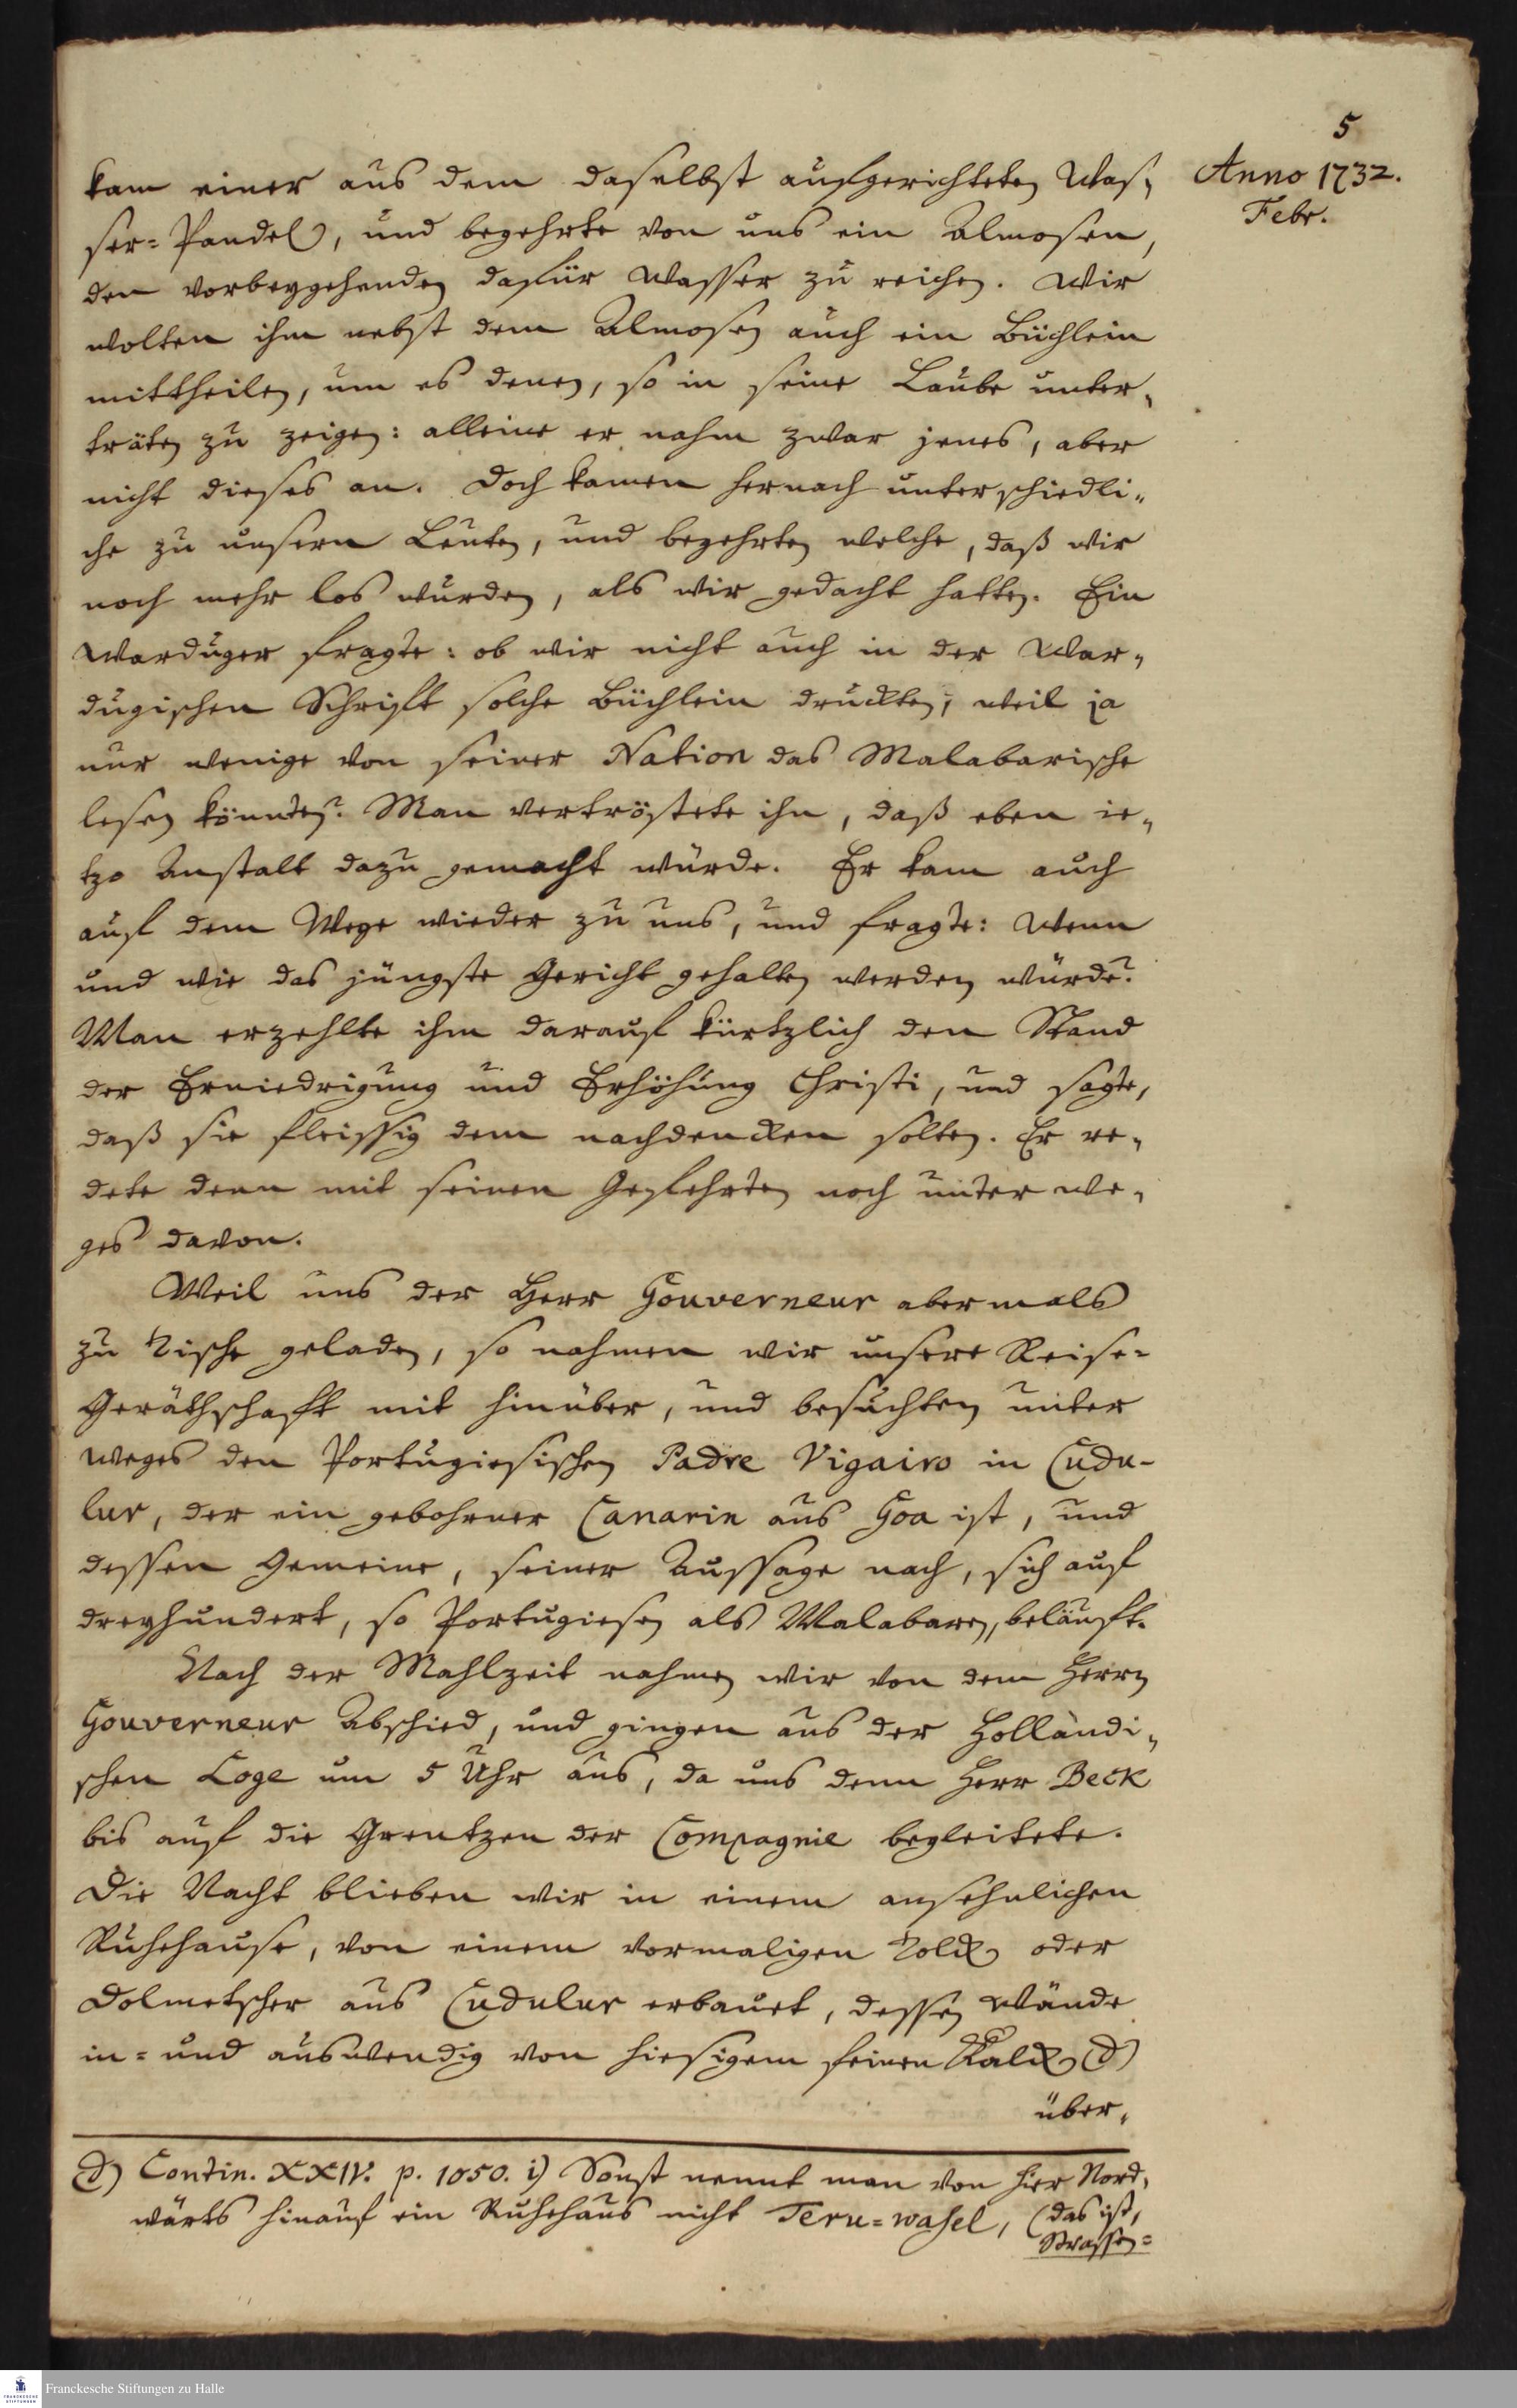 5
Anno 1732.
Febr.
kam einer aus dem daselbst aufgerichteten Was„
ser=Pandel, und begehrte von uns ein Almosen,
den vorbeygehenden dafür Wasser zu reichen. Wir
wolten ihm nebst dem Almosen auch ein Büchlein
mittheilen, um es denen, so in seine Laube unter„
träten zu zeigen: alleine er nahm zwar jenes, aber
nicht dieses an. Doch kamen hernach unterschiedli„
che zu unsern Leuten, und begehrten welche, daß wir
noch mehr los wurden, als wir gedacht hatten. Ein
Warduger fragte: ob wir nicht auch in der War„
dugischen Schrifft solche Büchlein druckten; weil ja
nur wenige von seiner Nation das Malabarische
lesen könnten? Man vertröstete ihn, daß eben ie„
tzo Anstalt dazu gemacht würde. Er kam auch
auf dem Wege wieder zu uns, und fragte: Wenn
und wie das jüngste Gericht gehalten werden würde?
Man erzehlte ihm darauf kürtzlich den Stand
der Erniedrigung und Erhöhung Christi, und sagte,
daß sie fleissig dem nachdencken solten. Er re„
dete denn mit seinen Gefehrten noch unter we„
ges davon.
Weil uns der Herr Gouverneur abermals
zu Tische geladen, so nahmen wir unsere Reise=
Geräthschafft mit hinüber, und besuchten unter
weges den Portugiesischen Padre Vigairo in Cudu-
lur, der ein gebohrner Canarin aus Goa ist, und
dessen Gemeine, seiner Aussage nach, sich auf
dreyhundert, so Portugiesen als Malabaren, beläufft.
Nach der Mahlzeit nahmen wir von dem Herrn
Gouverneur Abschied, und gingen aus der Holländi„
schen Loge um 5 Uhr aus, da uns denn Herr Beck
bis auf die Grentzen der Compagnie begleitete.
Die Nacht blieben wir in einem ansehnlichen
Ruhehause, von einem vormaligen Tolck oder
Dolmetscher aus Cudulur erbauet, dessen Wände
in= und auswendig von hiesigem feinen Kalck d)
über„
d) Contin. XXIV. p. 1050. i) Sonst nennt man von hier Nord„
wärts hinauf ein Ruhehaus nicht Teru=wasel, (das ist,
Strassen=
Franckesche Stiftungen zu Halle